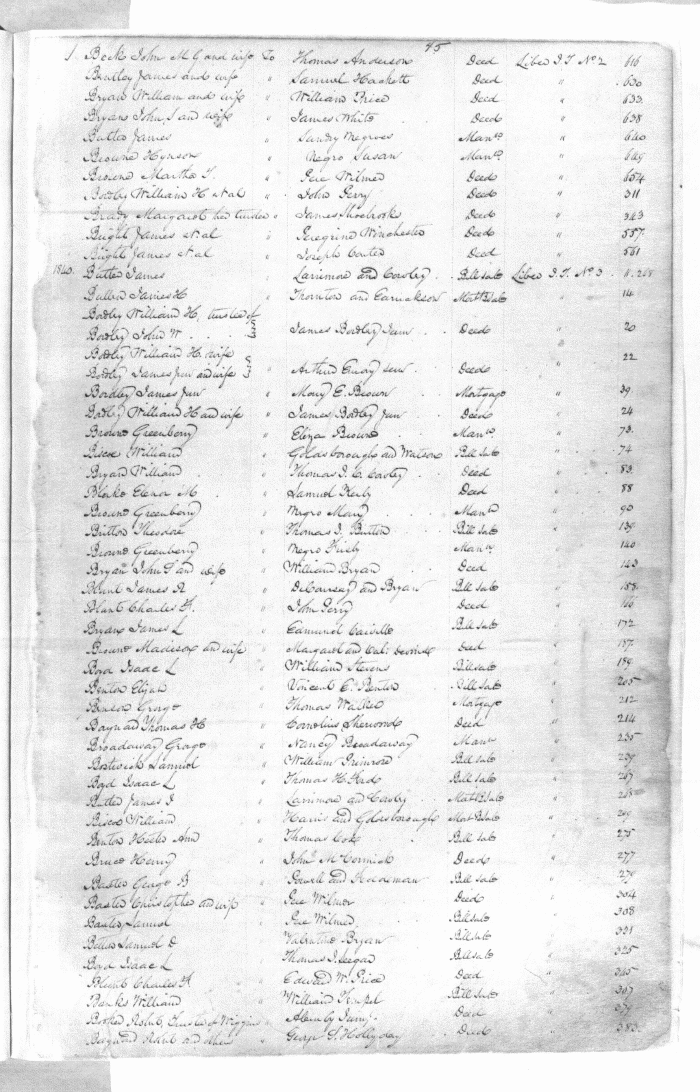 85
1. Beck John M G and wife To Thomas Anderson Deed Liber J.T. No 2 616
Bentley James and wife " Samuel Hackett Deed " 630
Bryan William and wife " William Price Deed " 633
Bryan John S and wife " James White Deed " 638
Butler James " Sundry Negroes Man.. " 640
Browne Hynson " Negro Susan Man.. " 649
Browne Martha T. " Pere Wilmer Deed " 654
Bordley William H et al " John Perry Deed " 311
Brady Margaret her trustee " James Shoebrooks Deed " 343
Bright James et al " Peregrine Winchester Deed " 557
Bright James et al " Joseph Coster Deed " 561
1840. Butler James " Larrimore and Cossley Bill Sale Liber J.T. No 3 11. 268
Bullen James H " Thornton and Mort B Sale " 14
Bordley William H, trustee of
Bordley John W. " James Bordley Jun Deed " 20
Bordley William H. wife
Bordley James Jun and wife " Arthur Emory sen Deed " 22
Bordley James Jun " Mary E. Brown Mortgage " 39
Bordley William H and wife " James Bordley Jun Deed " 24
Browne Greenberry " Eliza Browne Man.. " 73
Biscoe William " Goldsborough and Watson Bill Sale " 74
Bryan William " Thomas I. C. Deed " 83
Blake Elenor M. " Samuel Deed " 88
Browne Greenberry " Negro Mary Man.. " 90
Britton Theodore " Thomas I. Britton Bill Sale " 139
Browne Greenberry " Negro Man.. " 140
Bryan John S and wife " William Bryan Deed " 143
Blunt James R " DeCoursey and Bryan Bill Sale " 158
Blunt Charles H. " John Perry Deed " 166
Bryan James L " Edmund Bill Sale " 172
Browne Madison and wife " Margaret and Deed " 187
Boyd Isaac L " William Stevens Bill Sale " 189
Benton Elijah " Vincent E. Benton Bill Sale " 205
Benson George " Thomas Walker Mortgage " 212
Baynard Thomas H " Cornelius Sherwood Deed " 214
Broadaway George " Nancy Broadaway Man.. " 235
Bostwick Samuel " William Primrose Bill Sale " 239
Boyd Isaac L " Thomas H. Ford Bill Sale " 267
Butler James I " Larrimore and Cossley Mort B Sale " 268
Biscoe William " Harris and Goldsborough Mort B Sale " 269
Benton Hester Ann " Thomas Cox Bill Sale " 275
Bruce Henry " John McCormick Deed " 277
Baxter George B " Powell and Bill Sale " 279
Baxter Christopher and wife " Pere Wilmer Deed " 304
Baxter Samuel " Pere Wilmer Bill Sale " 308
Betts Samuel D " Valentine Bryan Bill Sale " 321
Boyd Isaac L " Thomas I. Seegar Bill Sale " 325
Blunt Charles H " Edward W. Price Deed " 365
Banks William " William Bill Sale " 367
Robt. trustee of Wiggins " Deed " 379
Baynard Robert and others " George S. Hollyday Deed " 383